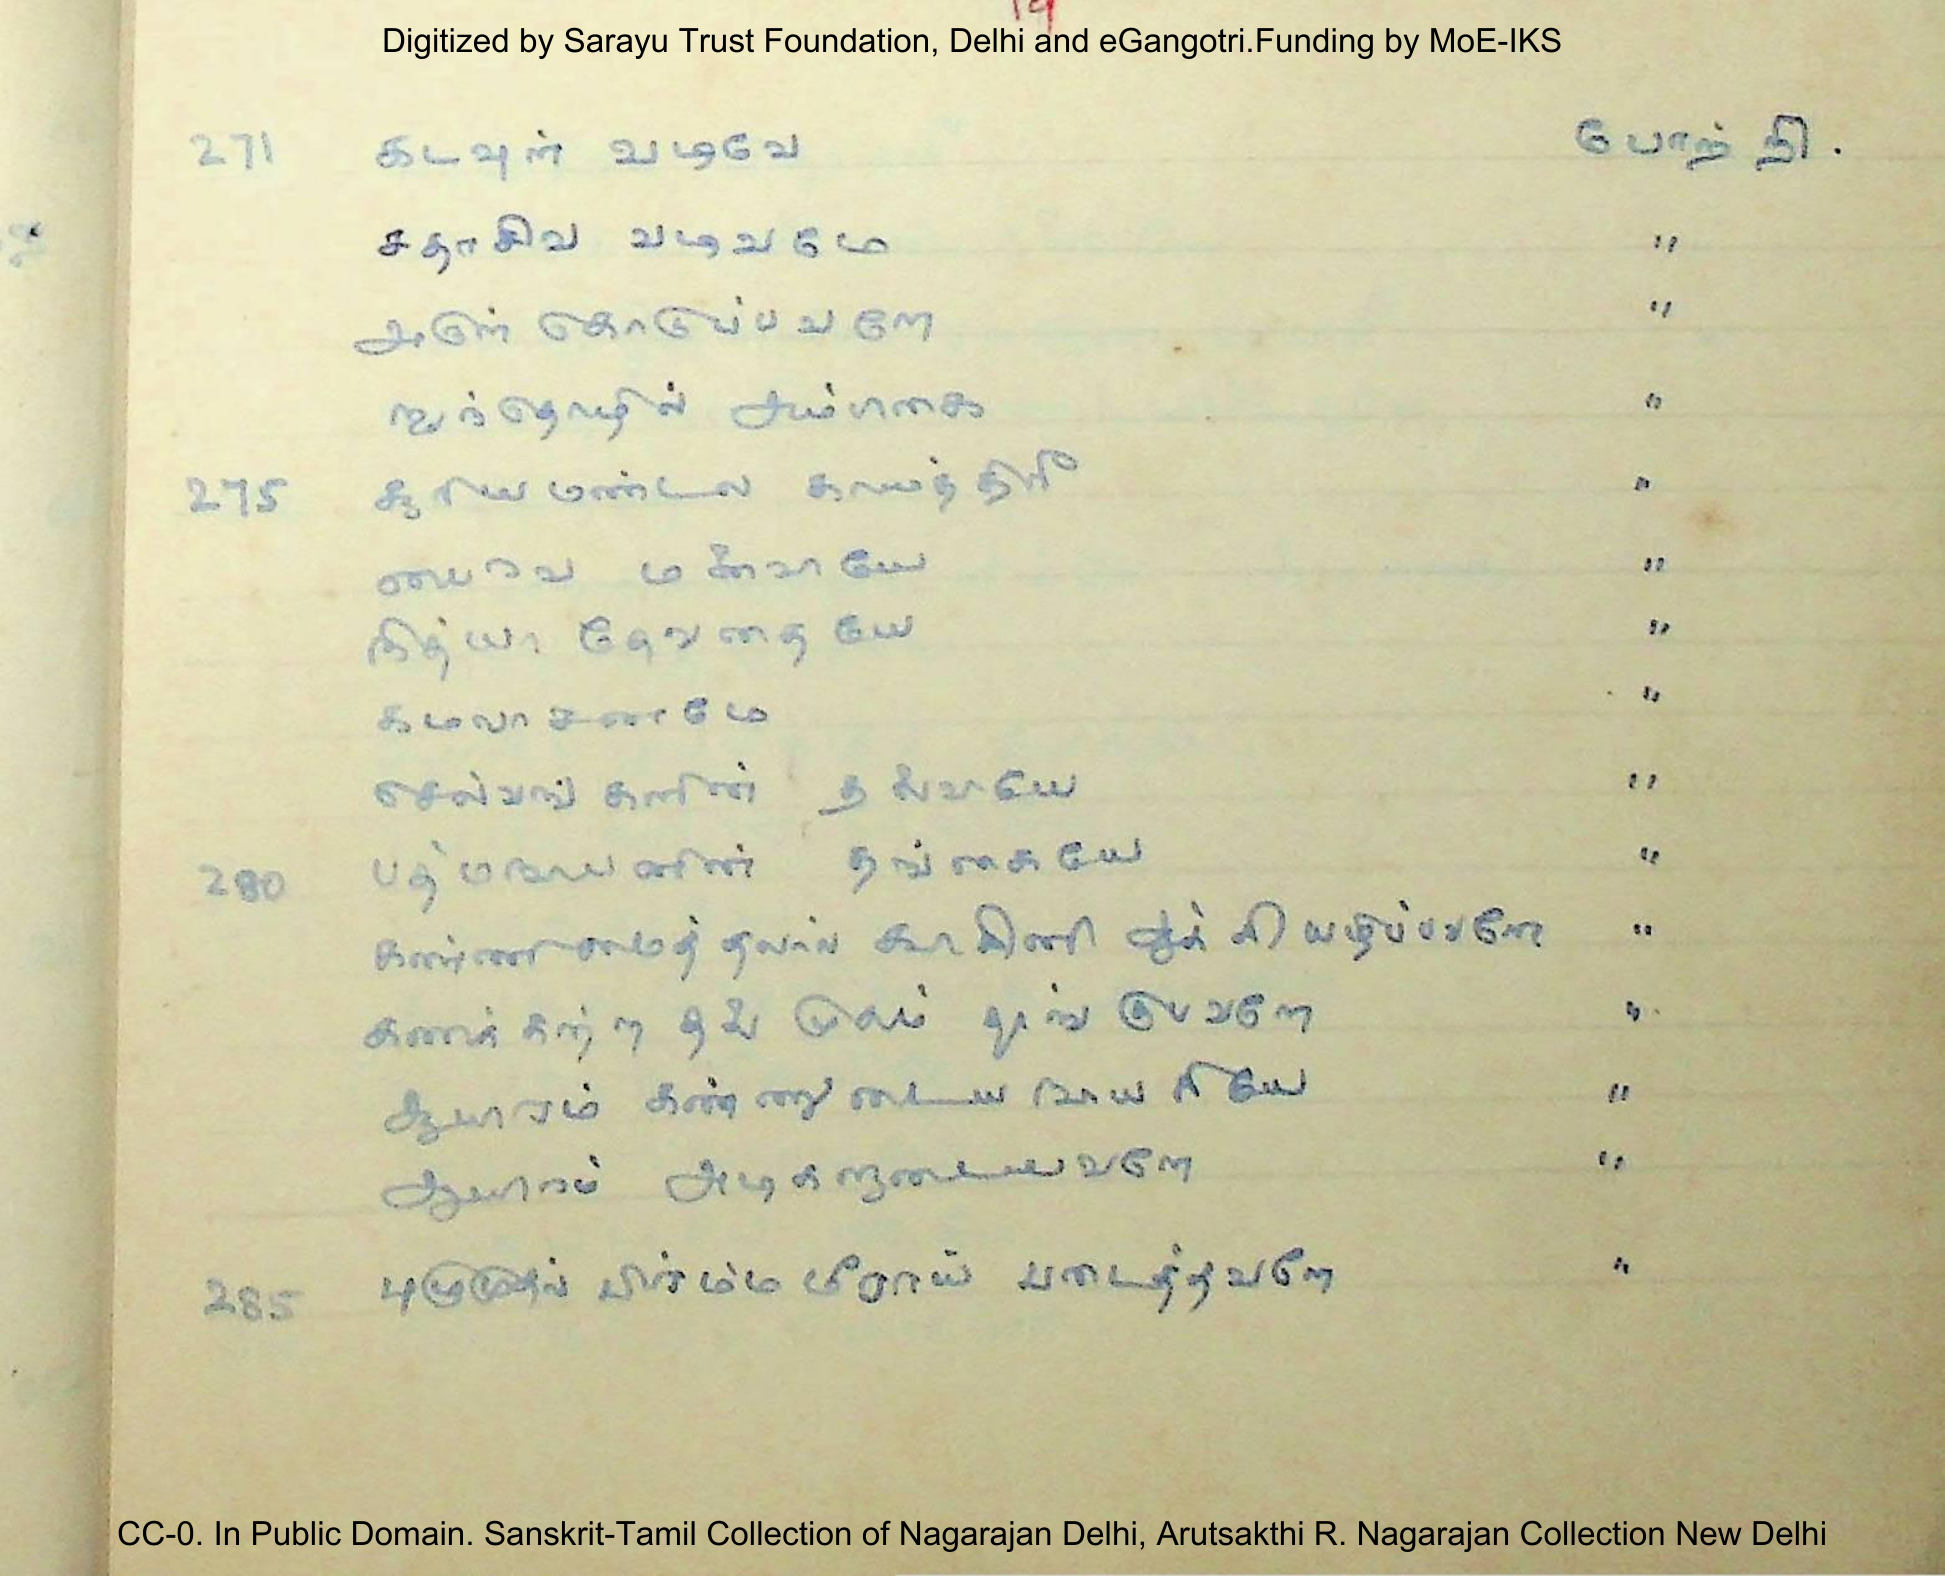 19
Digitized by Sarayu Trust Foundation, Delhi and eGangotri.Funding by MoE-IKS
271 கடவுள் வடிவே போற்றி.
சதாசிவ வடிவமே "
அருள் கொடுப்பவளே "
ஐந்தொழில் அம்பகை "
275 சூரியமண்டல காயத்திரீ "
பைரவ மனைவியே "
நித்யா தேவதையே "
கமலாசனமே "
செல்வங்களின் தலைவியே "
280 பத்மநாபனின் தங்கையே "
கண்ணிமைத்தலால் ஆக்கியழிப்பவளே "
கணக்கற்ற தலை முகம் தாங்குபவளே "
ஆயிரம் கண்ணுடைய நாயகியே "
ஆயிரம் அடிகளுடையவளே "
285 புழுமுதல் பிரம்ம மீறாய் படைத்தவளே "
CC-0. In Public Domain. Sanskrit-Tamil Collection of Nagarajan Delhi, Arutsakthi R. Nagarajan Collection New Delhi